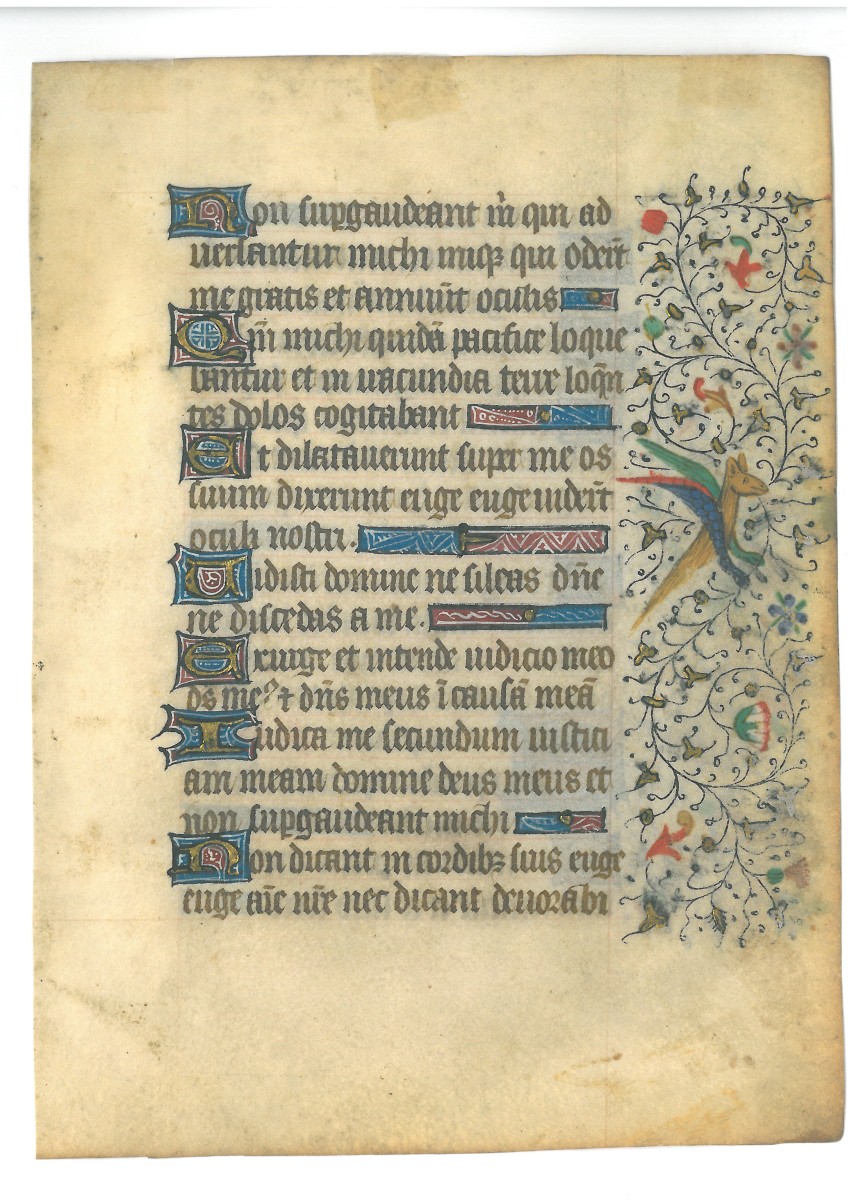 Non supgaudeant m̄ qui ad
versantur michi iniq̢ qui oderūt
me gratis et annuūt oculis
Qm̄ michi quidā pacifice loque
bantur et in iracundia terre loqn̄
tes dolos cogitabant
Et dilataverunt super me os
suum dixerunt euge euge viderūt
oculi nostri.
Vidisti domine ne sileas dn̄e
ne discedas a me.
Exurge et intende iudicio meo
ds me⁹ ⁊ dn̄s meus ī causā meā
Iudica me secundum iustici
am meam domine deus meus et
non supgaudeant michi
Non dicant in cordibꝫ suis euge
euge aīe nr̄e nec dicant devorabi